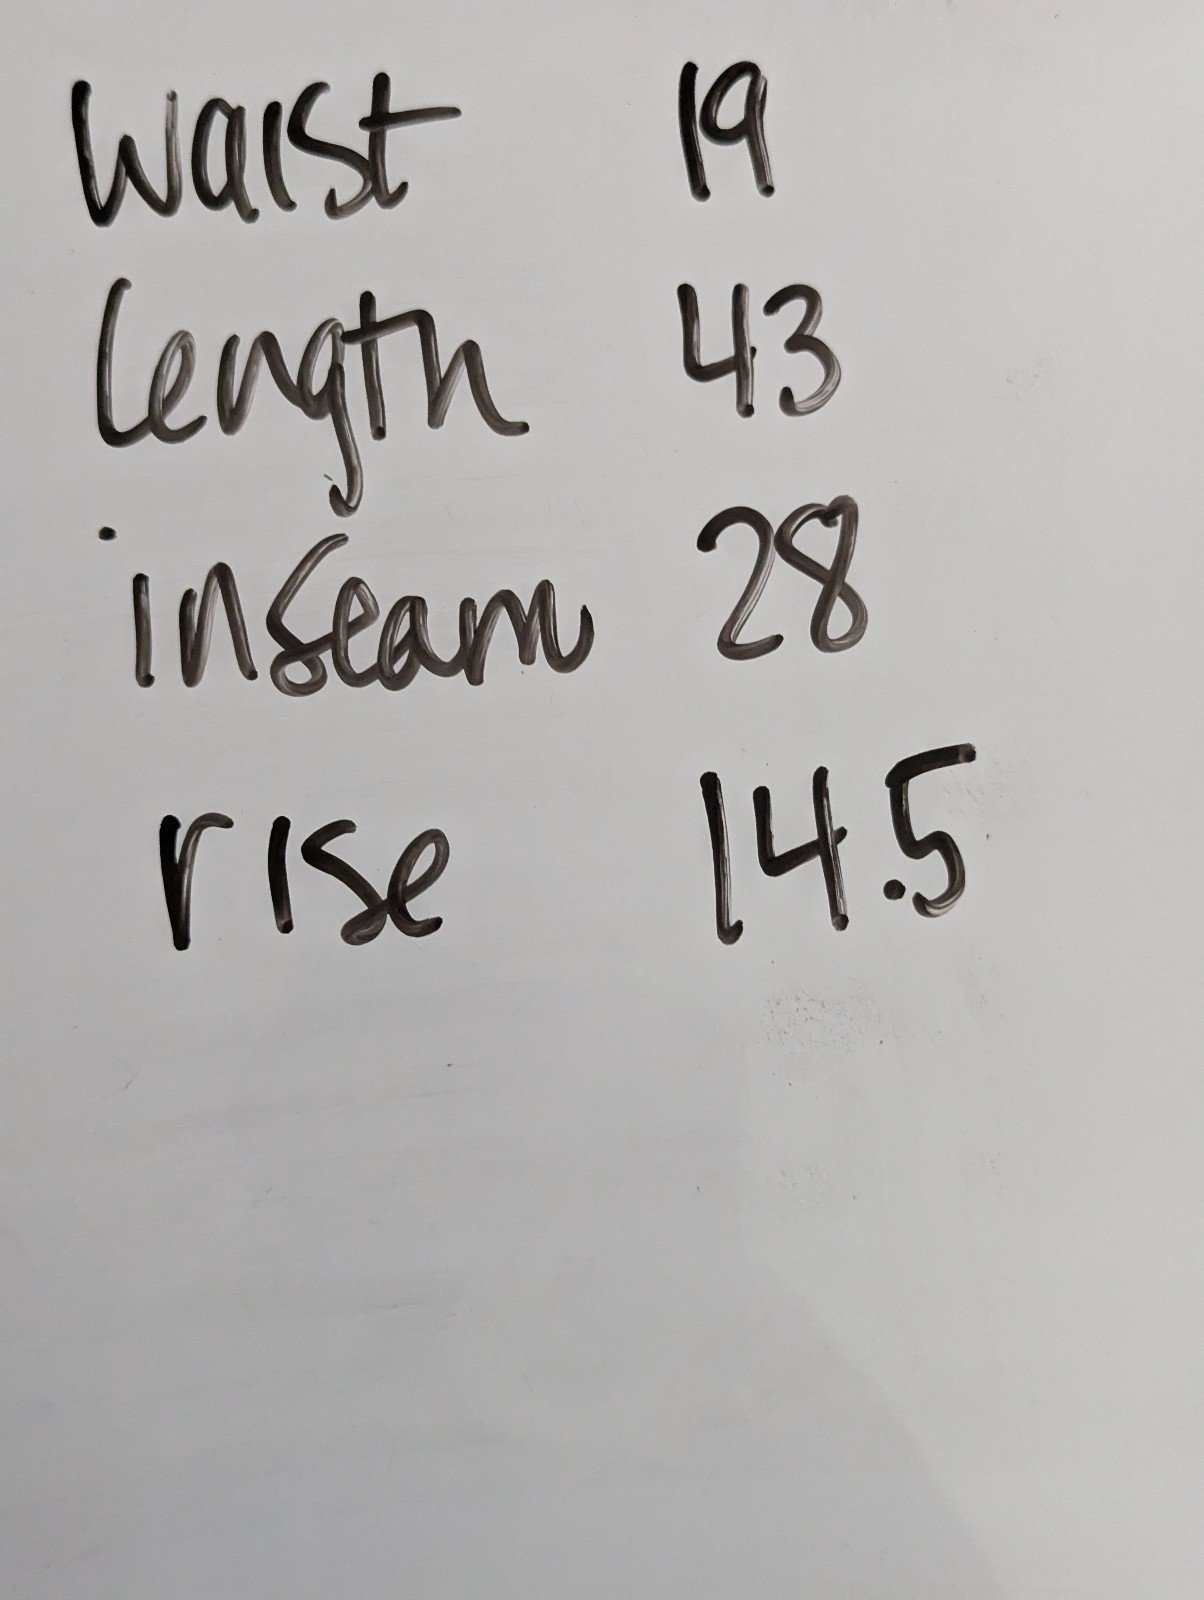 Waist 19
length 43
inseam 28
rise 14.5